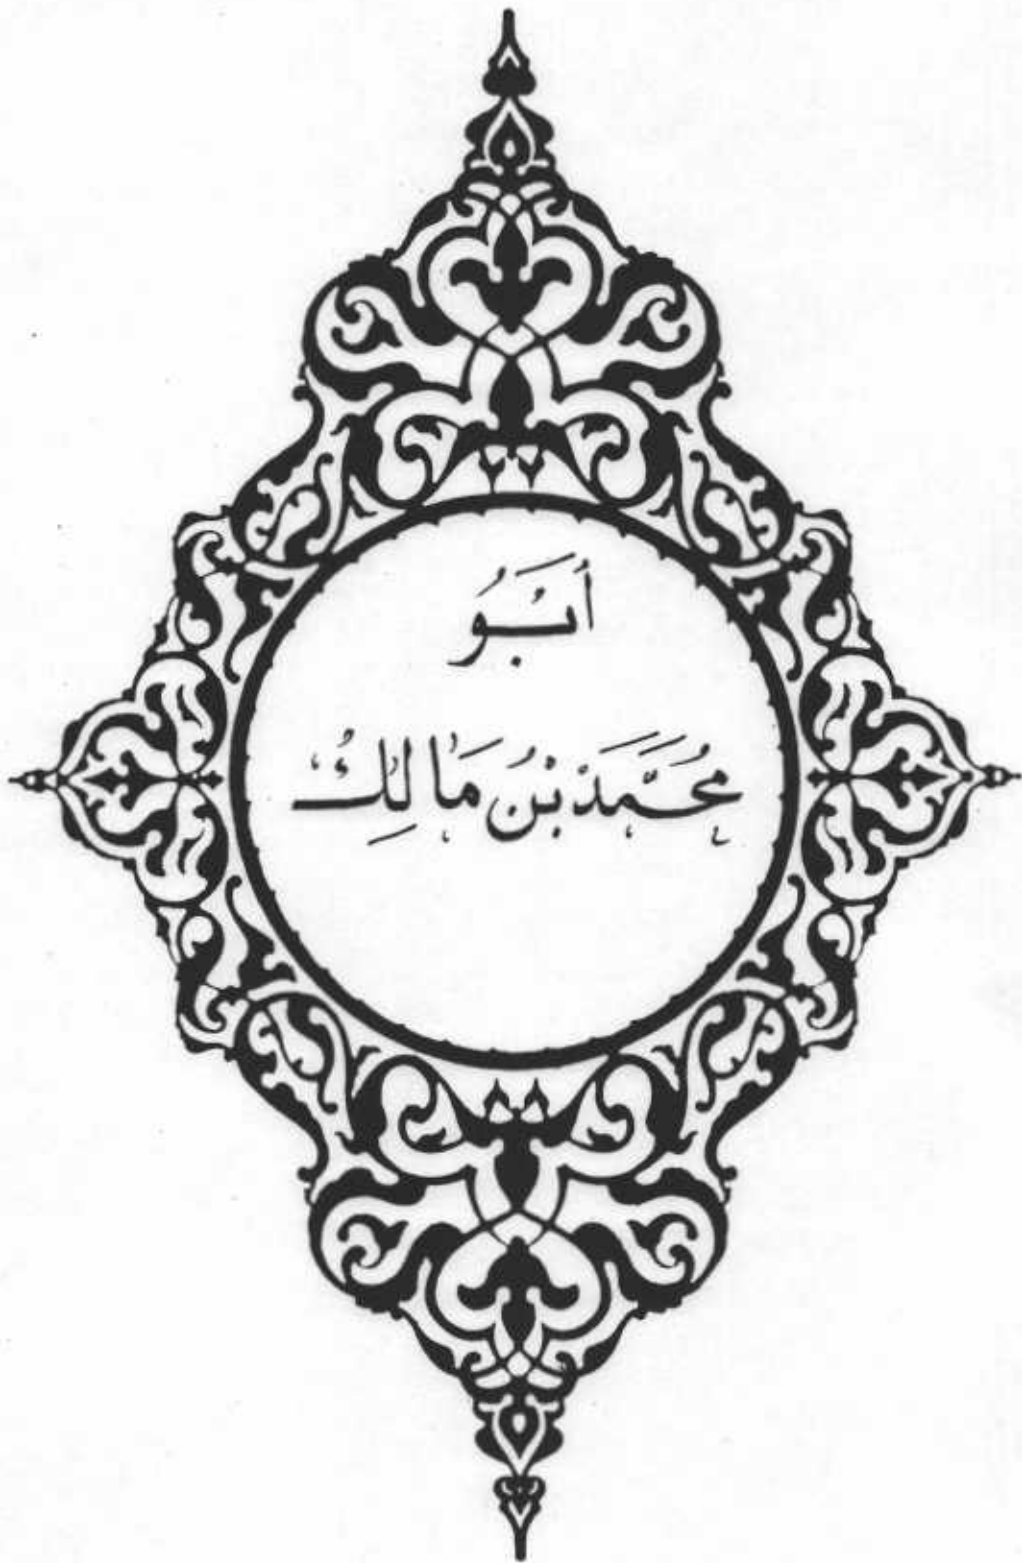 أَبُو
مُحَمَّدْ بْنُ مَالِكْ